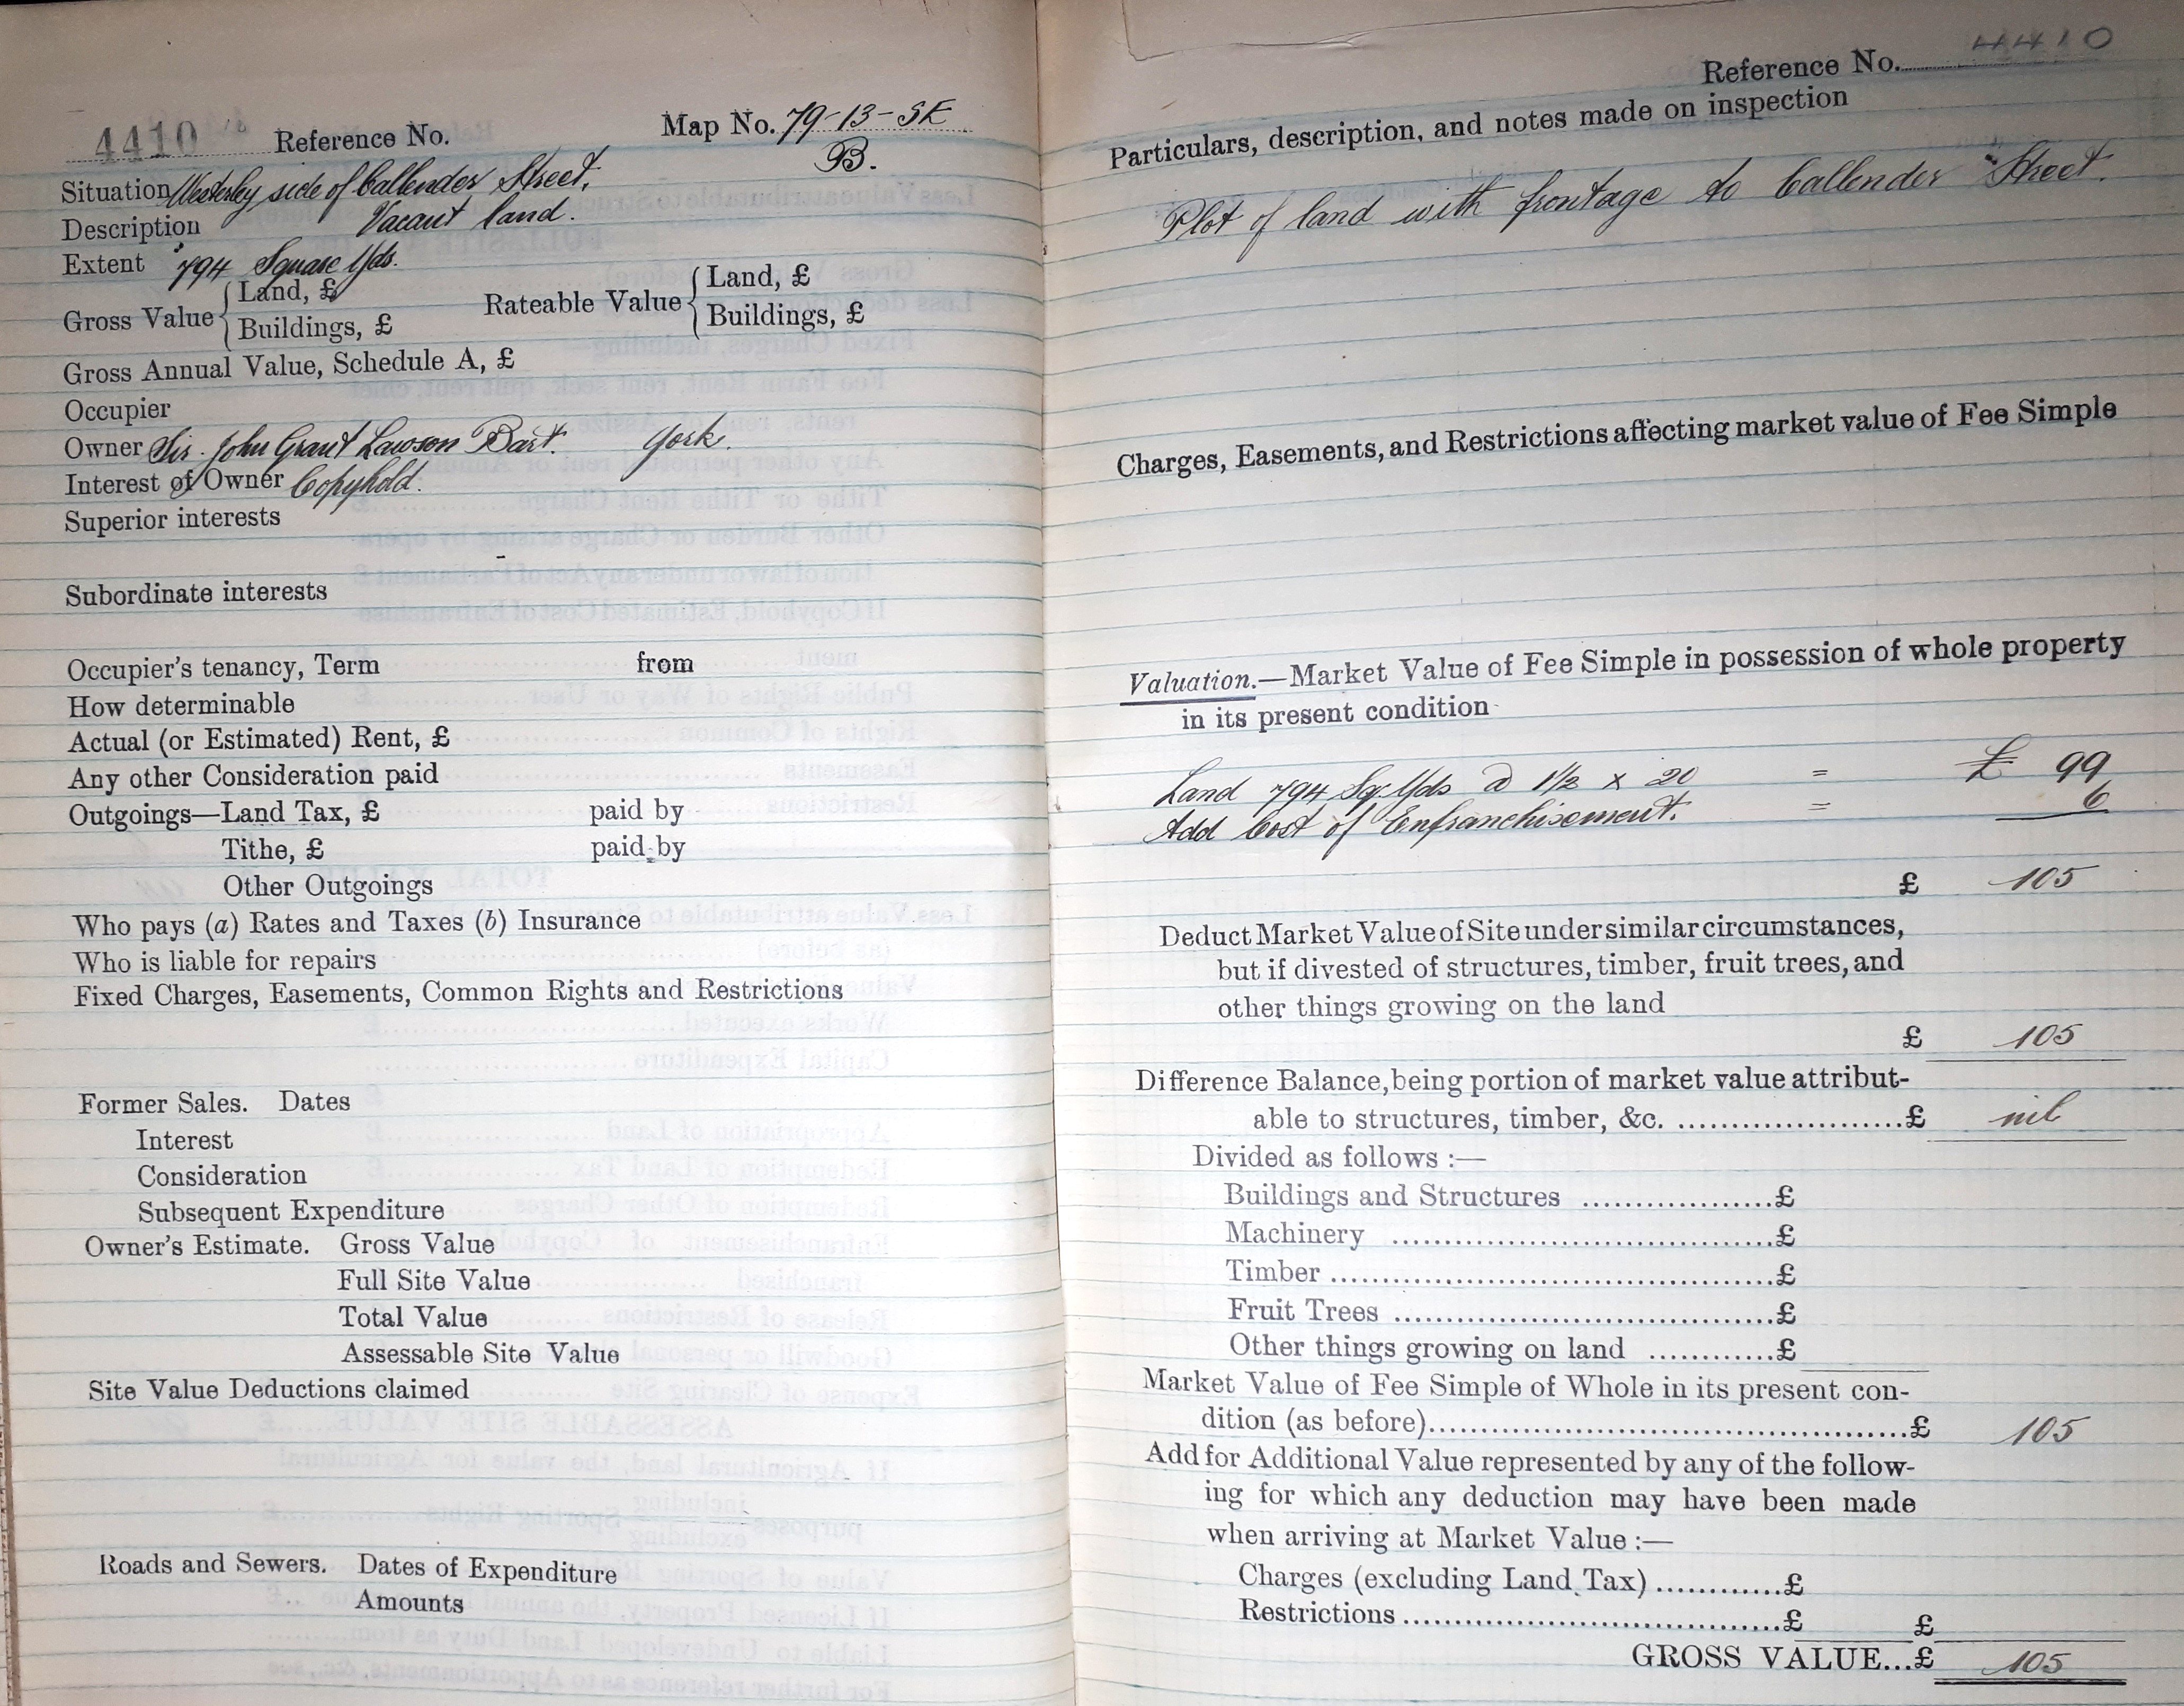 4410 Reference No. Map No. 79-13-SE
B.
Situation Westerley side of Callender Street,
Description Vacant land.
Extent 794 Square Yds.
Gross Value { Land, £ Rateable Value { Land, £
Buildings, £ Buildings, £
Gross Annual Value, Schedule A, £
Occupier
Owner Sir. John Grant Lawson Bart. York.
Interest of Owner Copyhold.
Superior interests
Subordinate interests
Occupier's tenancy, Term from
How determinable
Actual (or Estimated) Rent, £
Any other Consideration paid
Outgoings—Land Tax, £ paid by
Tithe, £ paid by
Other Outgoings
Who pays (a) Rates and Taxes (b) Insurance
Who is liable for repairs
Fixed Charges, Easements, Common Rights and Restrictions
Former Sales. Dates
Interest
Consideration
Subsequent Expenditure
Owner's Estimate. Gross Value
Full Site Value
Total Value
Assessable Site Value
Site Value Deductions claimed
Roads and Sewers. Dates of Expenditure
Amounts
Reference No. 4410
Particulars, description, and notes made on inspection
Plot of land with frontage to Callender Street.
Charges, Easements, and Restrictions affecting market value of Fee Simple
Valuation.—Market Value of Fee Simple in possession of whole property
in its present condition
Land 794 Sq. Yds @ 1½ x 20 = £ 99
Add Cost of Enfranchisement. = 6
£ 105
Deduct Market Value of Site under similar circumstances,
but if divested of structures, timber, fruit trees, and
other things growing on the land
£ 105
Difference Balance, being portion of market value attribut-
able to structures, timber, &c. ......................£ nil
Divided as follows :—
Buildings and Structures ...................£
Machinery ......................................£
Timber ............................................£
Fruit Trees .....................................£
Other things growing on land ............£
Market Value of Fee Simple of Whole in its present con-
dition (as before)...............................................£ 105
Add for Additional Value represented by any of the follow-
ing for which any deduction may have been made
when arriving at Market Value :—
Charges (excluding Land Tax) ............£
Restrictions .....................................£ £
GROSS VALUE...£ 105